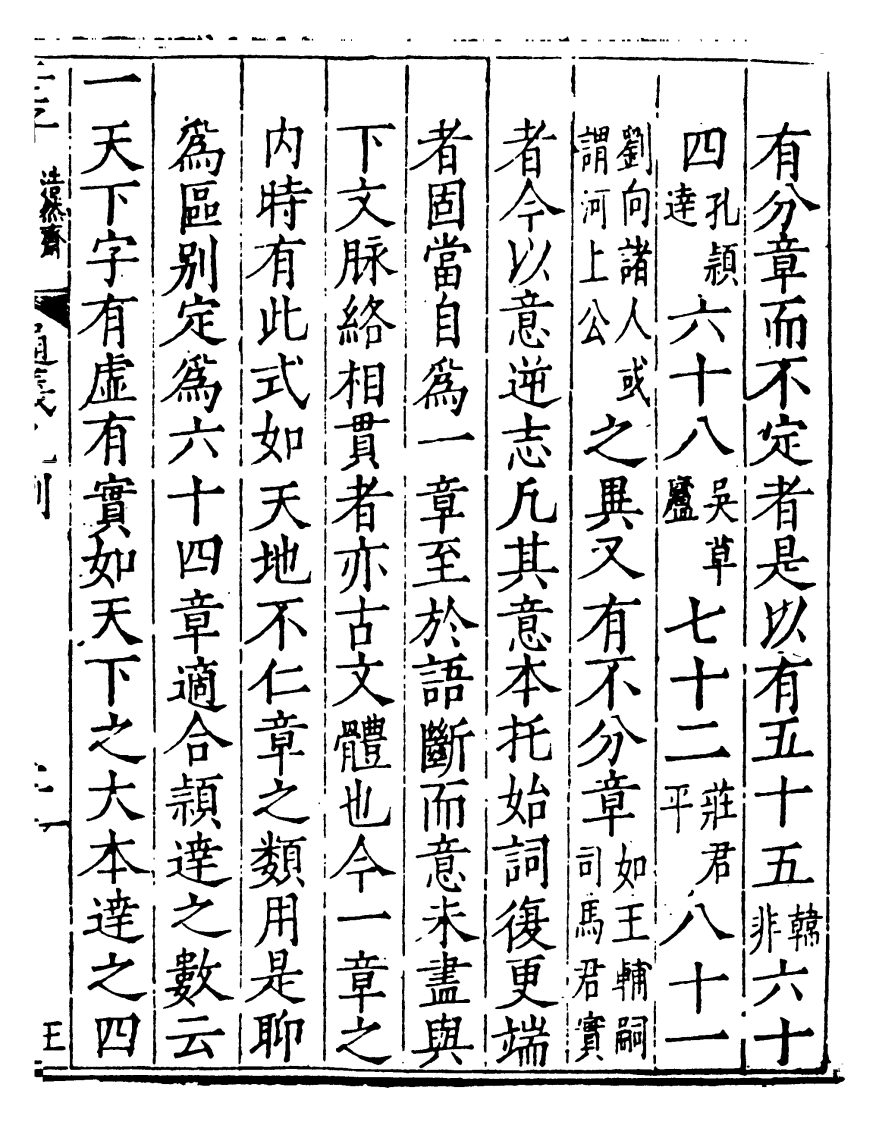 有分章而不定者是以有五十五韓非六十
四孔穎達六十八吳草廬七十二莊君平八十一
劉向諸人或謂河上公之異又有不分章如王輔嗣司馬君實
者今以意逆志凡其意本托始詞復更端
者固當自爲一章至於語斷而意未盡與
下文脉絡相貫者亦古文體也今一章之
内時有此式如天地不仁章之類用是聊
爲區别定爲六十四章適合穎達之數云
一天下字有虛有實如天下之大本達之四
浩然齋
王